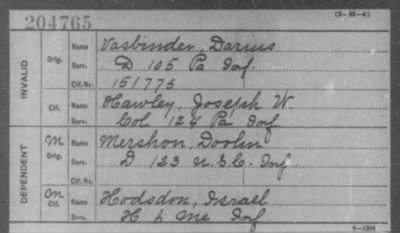 204765
(3-35-4)
INVALID
Orig.
Name Vasbinder, Darius
Serv. D 105 Pa Inf.
Ctf. No. 151775
Ctf.
Name Hawley, Joseph W.
Serv. Col. 124 Pa Inf
DEPENDENT
M
Orig.
Name Mershon, Doolin
Serv. D 123 U.S.C. Inf.
Ctf. No.
M
Ctf.
Name Hodsdon, Israel
Serv. H 6 Me Inf